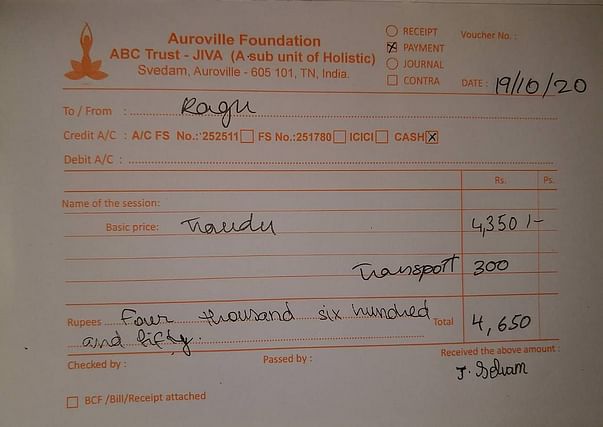 Auroville Foundation
ABC Trust - JIVA (A sub unit of Holistic)
Svedam, Auroville - 605 101, TN, India.
RECEIPT
PAYMENT
JOURNAL
CONTRA
Voucher No. :
DATE : 19/10/20
To / From : Ragu
Credit A/C : A/C FS No.: 252511 FS No.:251780 ICICI CASH
Debit A/C :
Rs. Ps.
Name of the session:
Basic price: 4,350 /-
Transport 300
Rupees Four thousand six hundred Total 4,650
and fifty.
Checked by : Passed by : Received the above amount :
BCF /Bill/Receipt attached